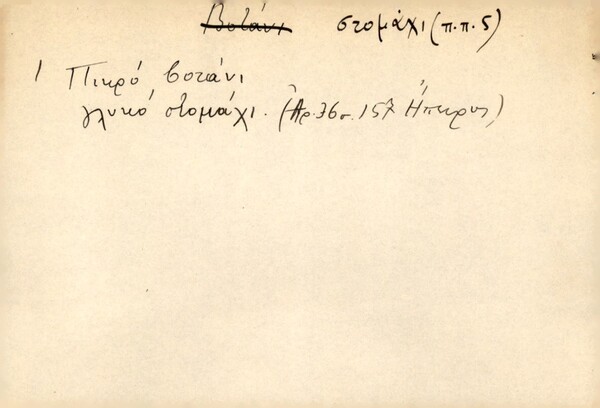 Βοτάνι στομάχι (π.π.5)
1 Πικρό βοτάνι
γλυκό στομάχι. (Ἀρ.36 σ.157 Ἤπειρος)